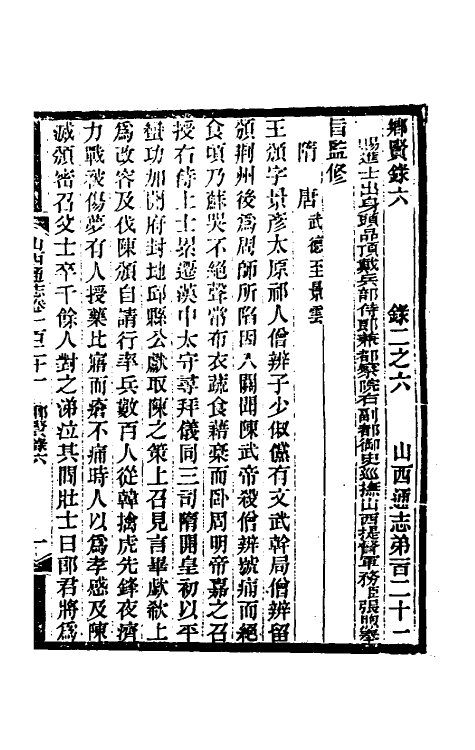 鄉賢錄六　錄二之六　山西通志弟一百二十一
賜進士出身頭品頂戴兵部侍郎兼都察院右副都御史巡撫山西提督軍務臣張煦奉
旨監修
隋　唐武德至景雲
王頒字景彥太原祁人僧辨子少俶儻有文武幹局僧辨留
頒荆州後為周師所陷因入關聞陳武帝殺僧辨號痛而絕
食頃乃蘇哭不絕聲常布衣蔬食藉藁而臥周明帝嘉之召
授右侍上士累遷漢中太守尋拜儀同三司隋開皇初以平
蠻功加開府封地邱縣公獻取陳之策上召見言畢歔欷上
為改容及伐陳頒自請行率兵數百人從韓擒虎先鋒夜濟
力戰被傷夢有人授藥比寤而瘡不痛時人以為孝感及陳
滅頒密召父士卒千餘人對之涕泣其間壯士曰郎君將為
山西通志卷一百二十一　鄉賢錄六　一